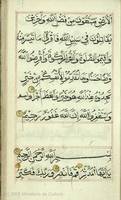 الأرض يبتغون من فضل الله وآخرون
يقاتلون في سبيل الله فاقرؤا ما تيسر منه
وأقيموا الصلوة وآتوا الزكوة وأقرضوا الله
قرضا حسنا وما تقدموا لأنفسكم من خير
تجدوه عند الله هو خيرا وأعظم أجرا
واستغفروا الله إن الله غفور رحيم
بسم الله الرحمن الرحيم
يا أيها المدثر قم فأنذر وربك فكبر
Ministerio de Cultura